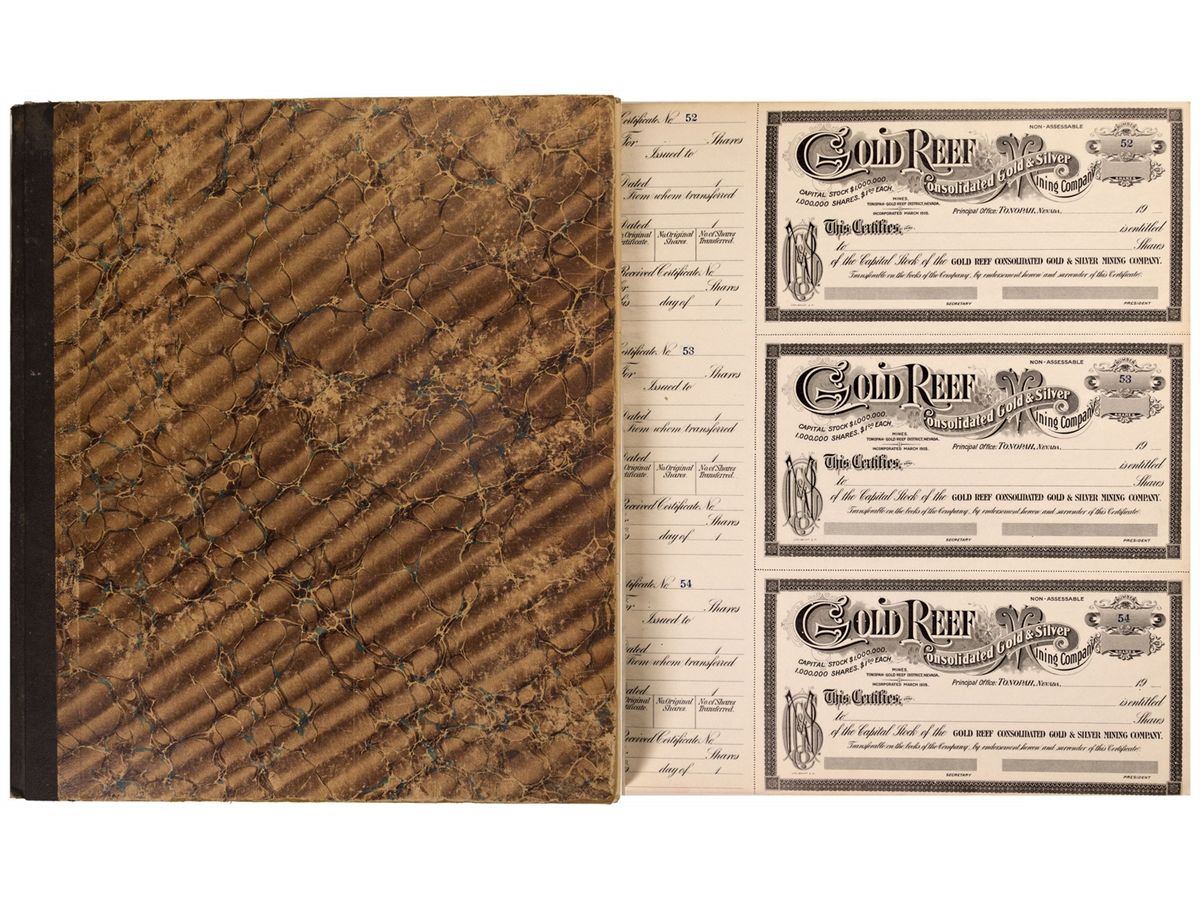 Certificate No. 52
For Shares
Issued to
Dated 1
From whom transferred
Dated 1
No. Original Certificate. No. Original Shares. No. of Shares Transferred.
Received Certificate No.
For Shares
this day of 1
NON-ASSESSABLE
NUMBER
52
SHARES
GOLD REEF
Consolidated Gold & Silver
Mining Company
CAPITAL STOCK $1,000,000.
1,000,000 SHARES, $1.00 EACH.
MINES,
TONOPAH-GOLD REEF DISTRICT, NEVADA.
INCORPORATED MARCH 1903.
Principal Office: TONOPAH, NEVADA, 19
This Certifies, is entitled
to Shares
of the Capital Stock of the GOLD REEF CONSOLIDATED GOLD & SILVER MINING COMPANY.
Transferable on the books of the Company, by endorsement hereon and surrender of this Certificate.
SECRETARY PRESIDENT
Certificate No. 53
For Shares
Issued to
Dated 1
From whom transferred
Dated 1
No. Original Certificate. No. Original Shares. No. of Shares Transferred.
Received Certificate No.
For Shares
this day of 1
NON-ASSESSABLE
NUMBER
53
SHARES
GOLD REEF
Consolidated Gold & Silver
Mining Company
CAPITAL STOCK $1,000,000.
1,000,000 SHARES, $1.00 EACH.
MINES,
TONOPAH-GOLD REEF DISTRICT, NEVADA.
INCORPORATED MARCH 1903.
Principal Office: TONOPAH, NEVADA, 19
This Certifies, is entitled
to Shares
of the Capital Stock of the GOLD REEF CONSOLIDATED GOLD & SILVER MINING COMPANY.
Transferable on the books of the Company, by endorsement hereon and surrender of this Certificate.
SECRETARY PRESIDENT
Certificate No. 54
For Shares
Issued to
Dated 1
From whom transferred
Dated 1
No. Original Certificate. No. Original Shares. No. of Shares Transferred.
Received Certificate No.
For Shares
this day of 1
NON-ASSESSABLE
NUMBER
54
SHARES
GOLD REEF
Consolidated Gold & Silver
Mining Company
CAPITAL STOCK $1,000,000.
1,000,000 SHARES, $1.00 EACH.
MINES,
TONOPAH-GOLD REEF DISTRICT, NEVADA.
INCORPORATED MARCH 1903.
Principal Office: TONOPAH, NEVADA, 19
This Certifies, is entitled
to Shares
of the Capital Stock of the GOLD REEF CONSOLIDATED GOLD & SILVER MINING COMPANY.
Transferable on the books of the Company, by endorsement hereon and surrender of this Certificate.
SECRETARY PRESIDENT